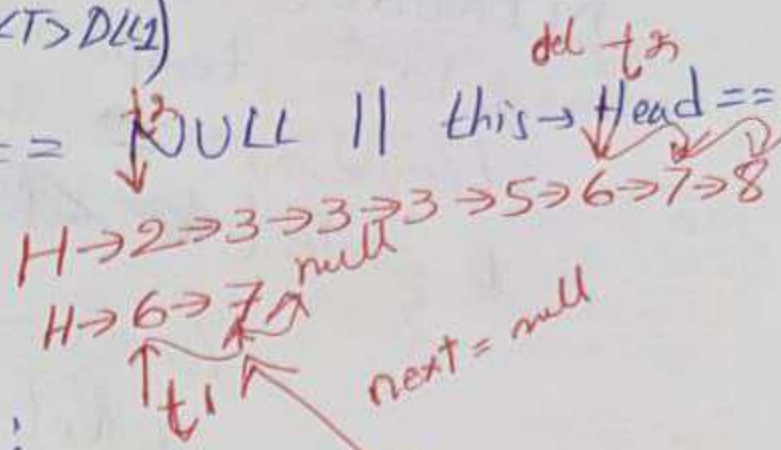 <T> DLL1)
del t2
== NULL || this→Head ==
H→2→3→3→3→5→6→7→8
null
H→6→7
next = null
t1
;